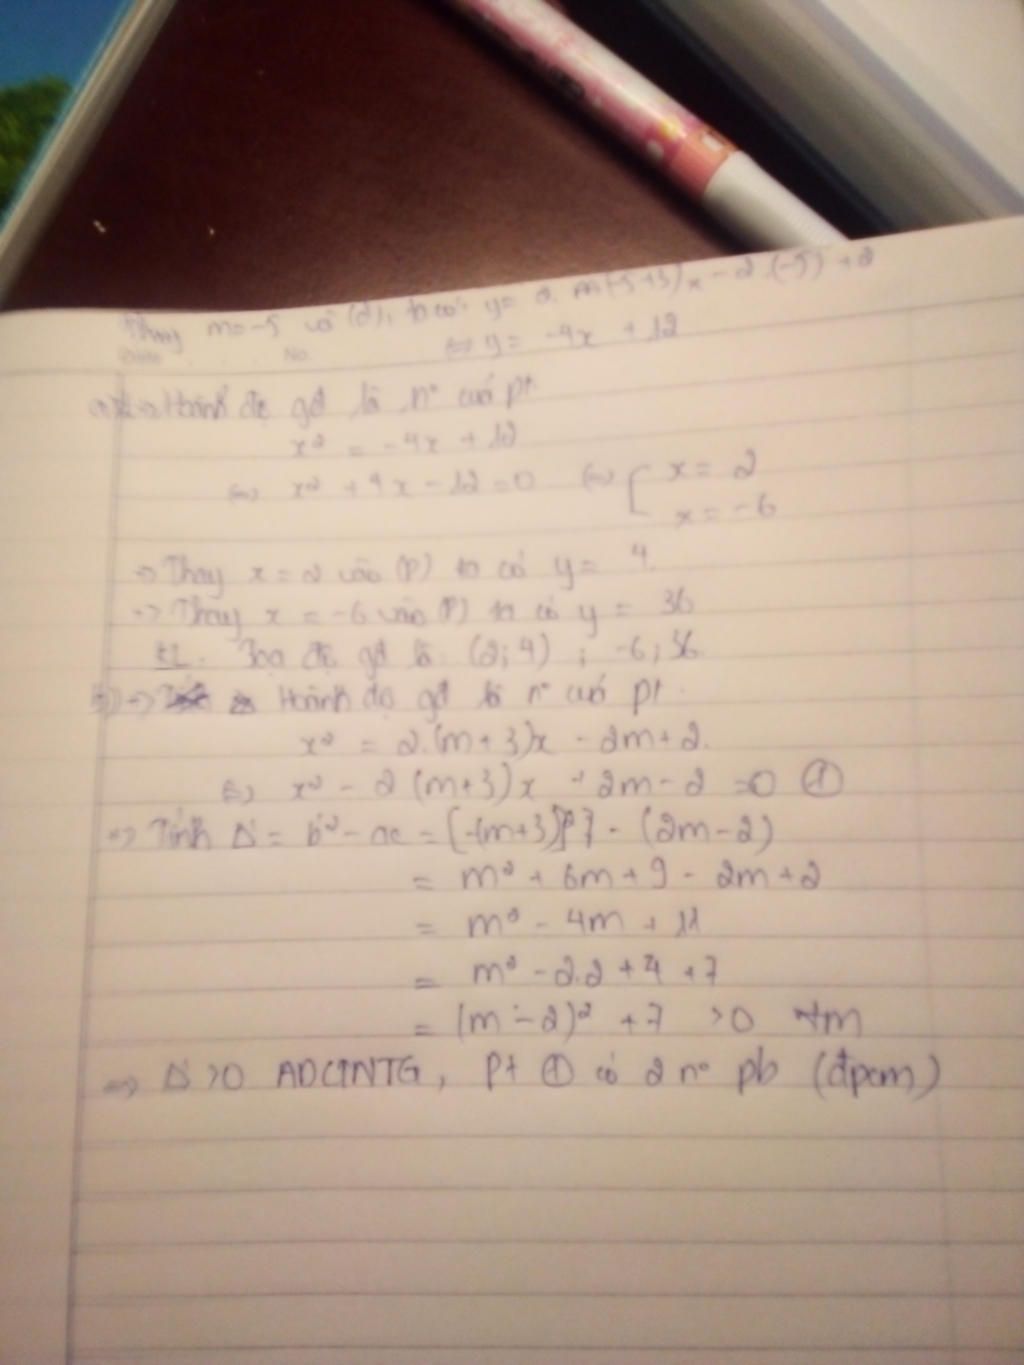 Thay m = -5 vào (d), ta có: y = 2. m(-5+3)x - 2.(-5) + 2
Date No.
⇔ y = -4x + 12
a) => Hoành độ gđ là n° của pt
x² = -4x + 12
⇔ x² + 4x - 12 = 0 ⇔ [ x = 2
x = -6
-> Thay x = 2 vào (P) ta có y = 4.
-> Thay x = -6 vào (P) ta có y = 36
KL. Toạ độ gđ là (2; 4) ; -6; 36.
b) -> Hoành độ gđ là n° của pt.
x² = 2.(m+3)x - 2m + 2.
⇔ x² - 2 (m+3)x + 2m - 2 = 0 ①
-> Tính Δ' = b'² - ac = [-(m+3)]² - (2m-2)
= m² + 6m + 9 - 2m + 2
= m² - 4m + 11
= m² - 2.2 + 4 + 7
= (m - 2)² + 7 > 0 ∀m
=> Δ' > 0 ADCTNTG, Pt ① có 2 n° pb (đpcm)